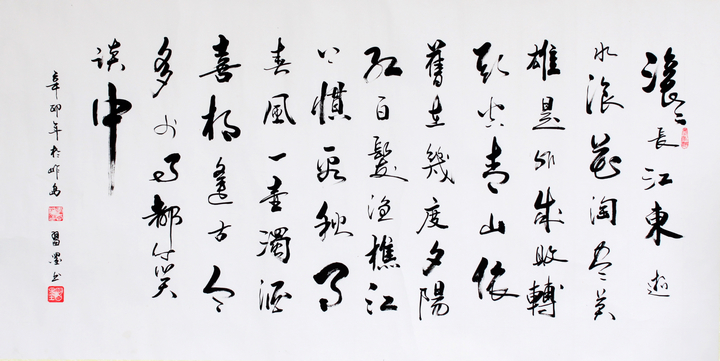 滾々長江東逝
水浪花淘盡英
雄是非成敗轉
頭空青山依
舊在幾度夕陽
紅白髮漁樵江
上慣看秋月
春風一壺濁酒
喜相逢古今
多少事都付笑
談中
辛卯年於